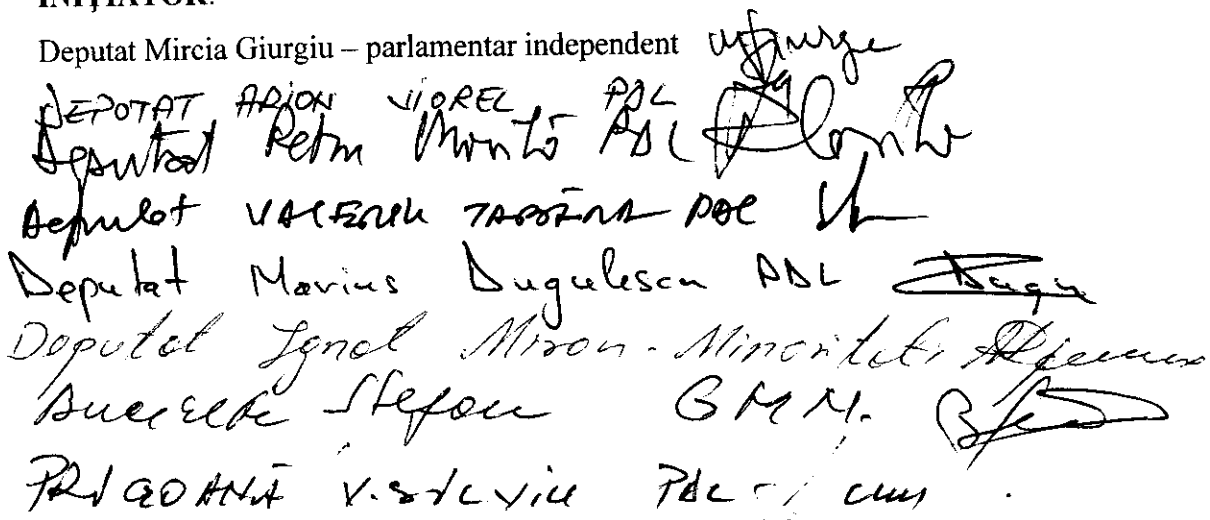 INIȚIATOR:
Deputat Mircia Giurgiu – parlamentar independent
DEPUTAT ARION VIOREL PDL
Deputat Petru Movilă PDL
Deputat VALERIU TABĂRĂ PDL
Deputat Marius Dugulescu PDL Dugu
Deputat Ignat Miron - Minorități
Buciuta Stefan GMN.
PRIGOANĂ V. SILVIU PDL